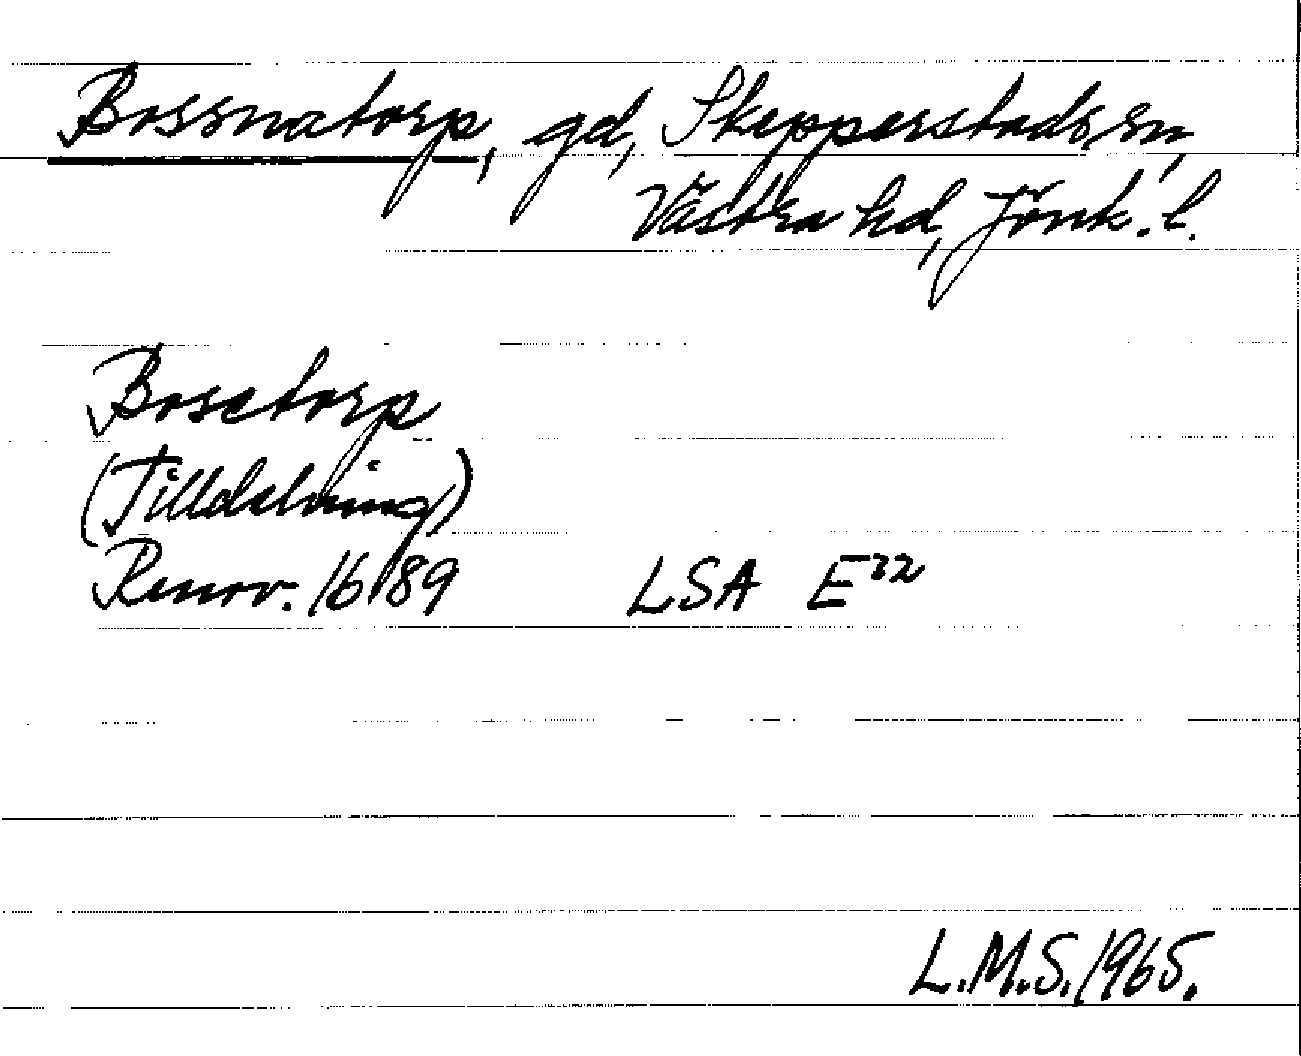 Bossnatorp, gd, Skepperstads sn,
Västra hd, Jönk. l.
Bosetorp
(Tilldelning)
Renov. 1689 LSA E²²
L.M.S. 1965.